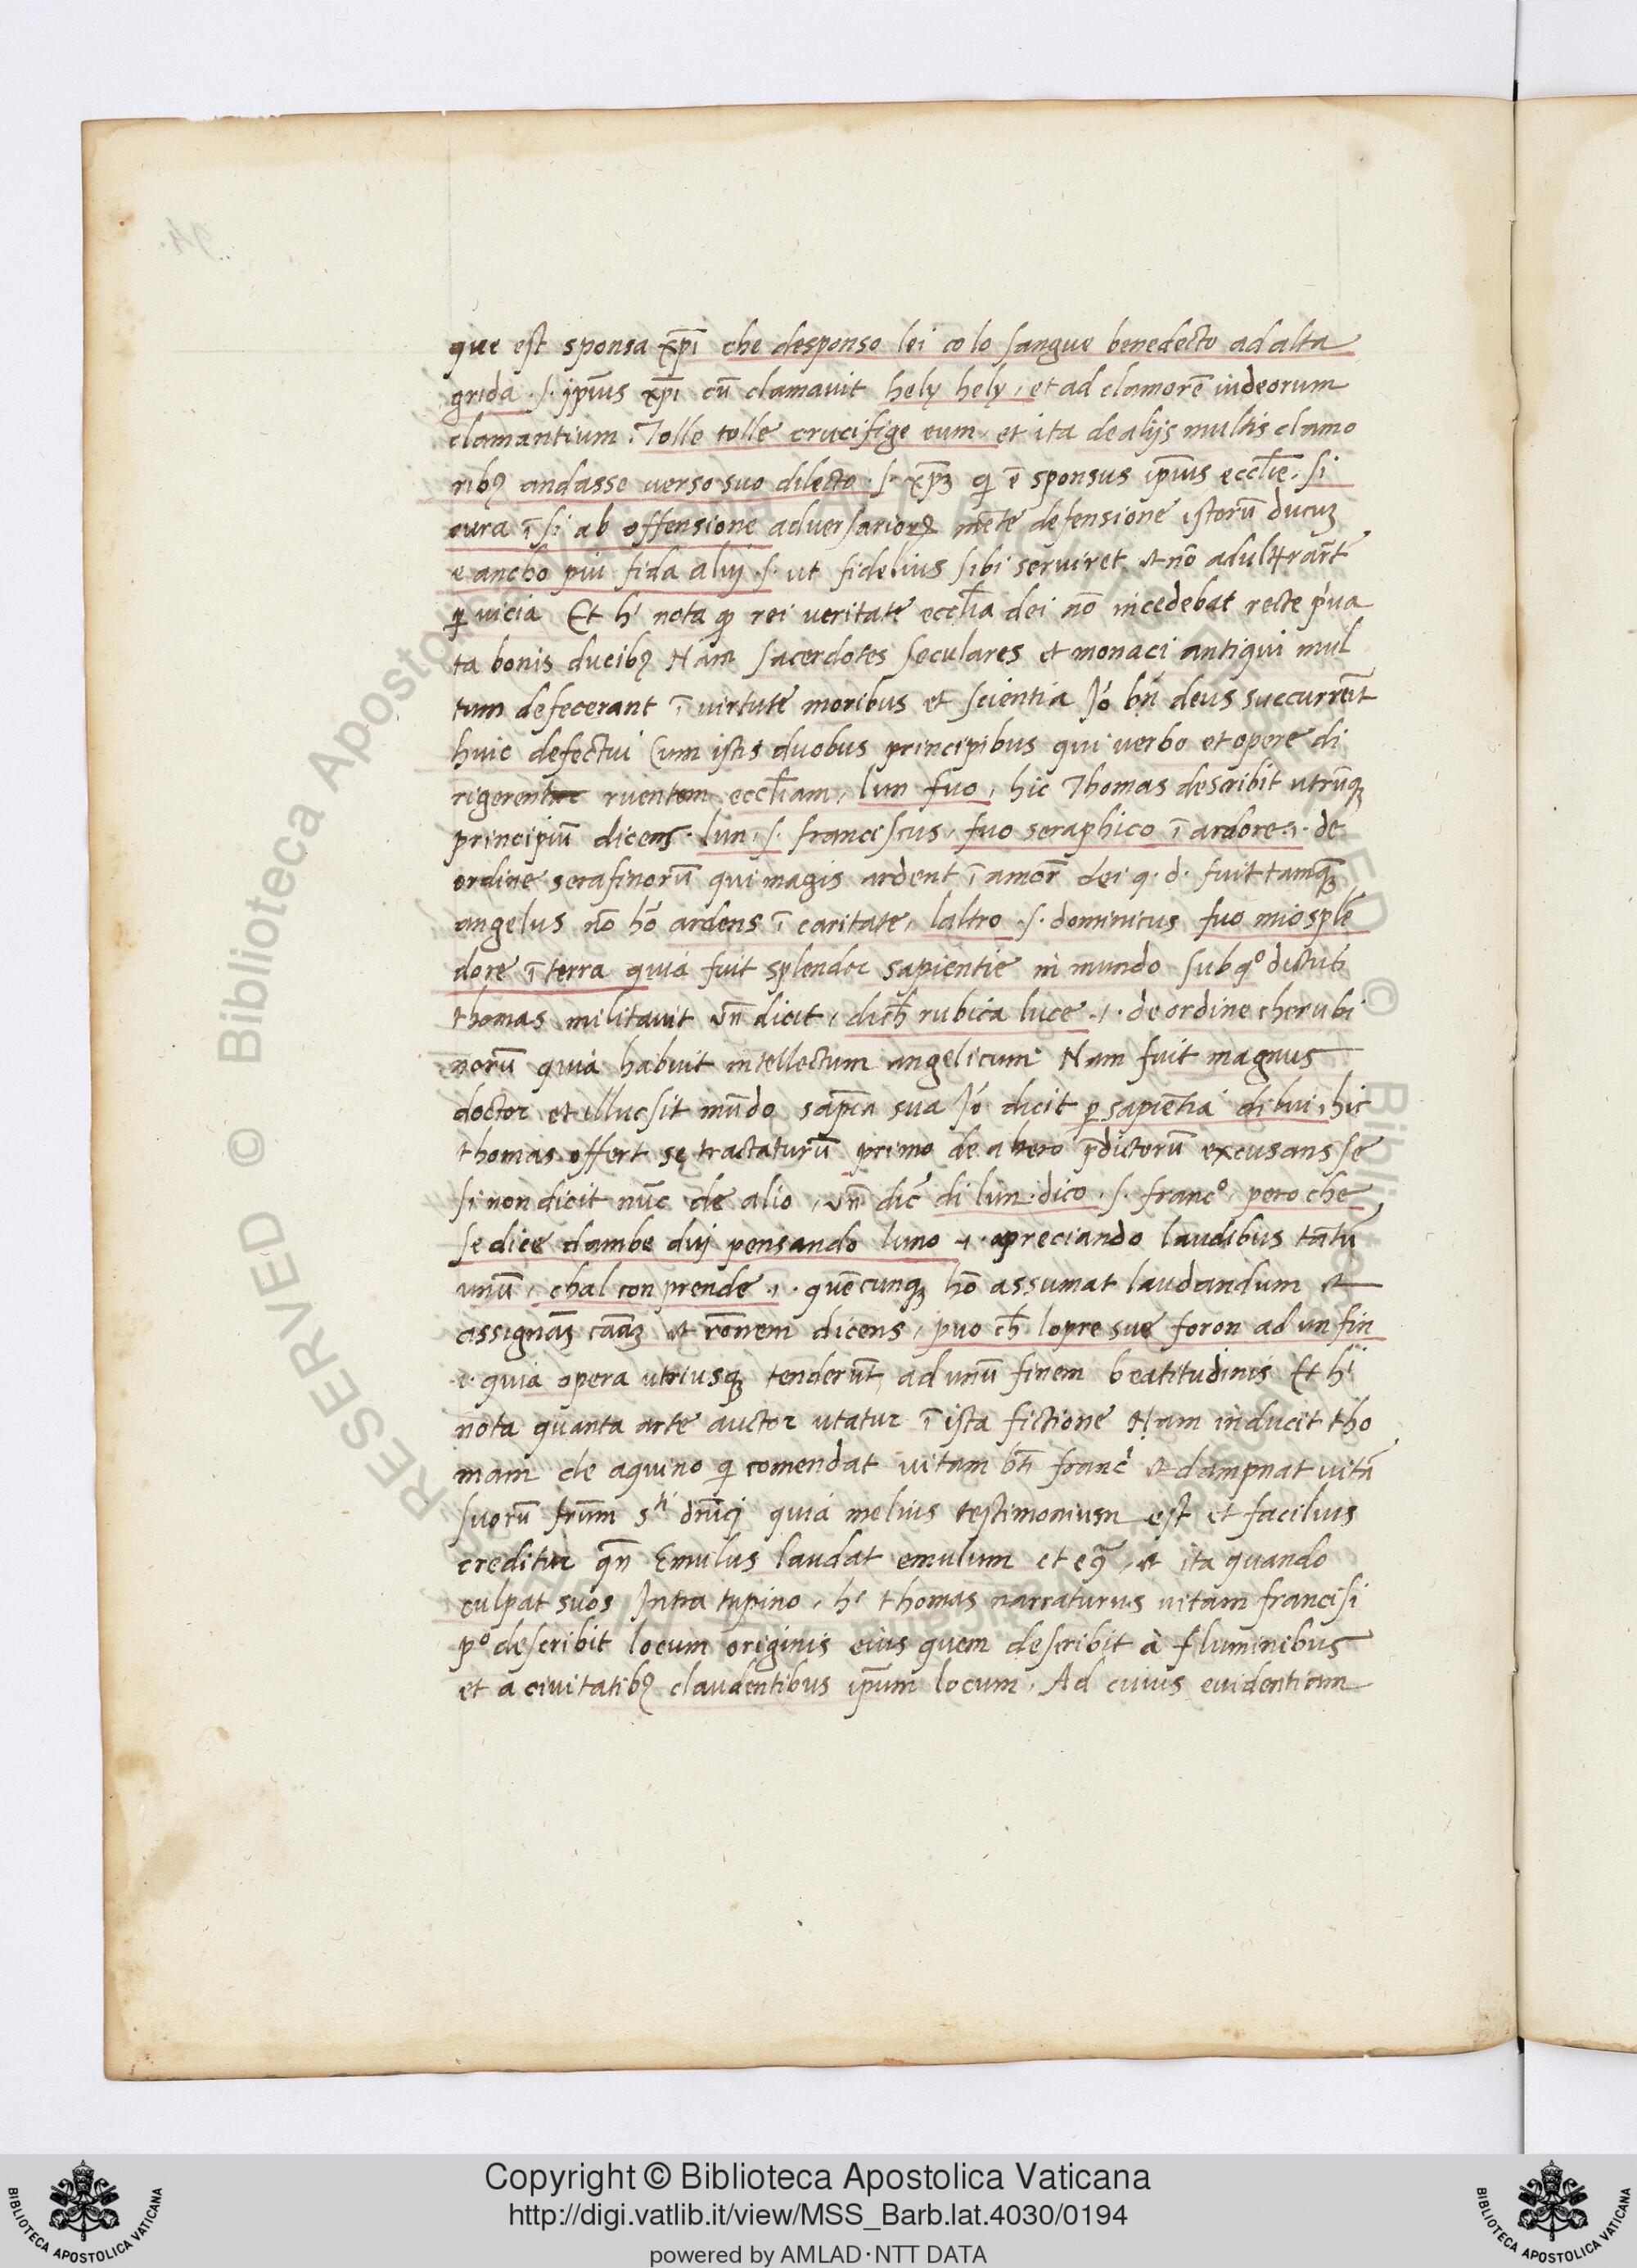 que est sponsa xp̄i che desponso lei co lo sangue benedecto ad alta
grida .s. ip̄ius xp̄i cū clamauit hely hely, et ad clamorē iudeorum
clamantium. Tolle tolle crucifige eum et ita de alijs multis clamo
ribꝫ andasse verso suo dilecto .s. xp̄ꝫ q̇ ē sponsus ip̄ius eccl̄ie. si
cura ī si ab offensione adversarioꝝ mēte defensione istorū ducuꝫ
e ancho piu fida a luj .s. ut fidelius sibi serviret et nō adultrar̄t
ꝑ vicia Et h' nota ꝙ rei veritate eccl̄ia dei nō incedebat recte p'va
ta bonis ducibꝫ Nam sacerdotes seculares et monaci antiqui mul
tum defecerant ī virtute moribus et scientia Jó bn̄ deus succurrēt
huic defectui Cum istis duobus principibus qui verbo et opere di
rigerent ruentem eccl̄iam, lun fuo, hic Thomas describit utrūqꝫ
principiū dicens. lun .s. franciscus, fuo seraphico ī ardore .i. de
ordine serafinorū qui magis ardent ī amor̄ dei q. d. fuit tamqꝫ
angelus nō hō ardens ī caritate, laltro .s. dominicus fuo mi osplē
dore ī terra quia fuit splendor sapientie in mundo sub qº dictus
thomas militavit vn̄ dicit, di ch̄rubica luce .i. de ordine cherubi
norū quia habuit intellectum angelicum Nam fuit magnus
doctor et illucsit mūdo sap̄ia sua Jó dicit ꝑ sapiētia di lui, hic
thomas offert se tractaturū primo de altero p̄dictorū excusans se
si non dicit nūc de alio, vn̄ dic̄ di lun dico .s. francº, pero che
se dice dambe duj pensando luno .i. apreciando laudibus tātū
unū, chal con prende .i. quēcunqꝫ hō assumat laudandum et
assignāꝫ cāāꝫ et rōnem dicens, puo ch̄ lopre sue foron ad un fin
.i. quia opera utriusqꝫ tenderūt, ad unū finem beatitudinis Et h'
nota quanta arte auctor utatur ī ista fictione Nam inducit tho
mam de aquino q̇ comendat vitam bt̄i franc̄i et dampnat vitā
suorū frūm sti dn̄icj quia melius testimonium est et facilius
creditur qn̄ Emulus laudat emulum et eqꝫ, et ita quando
culpat suos Intra tupino, h' thomas narraturus vitam francisi
pº describit locum originis eius quem describit à fluminibus
et a civitatibꝫ claudentibus ip̄um locum. Ad cuius evidentiam
Copyright © Biblioteca Apostolica Vaticana
http://digi.vatlib.it/view/MSS_Barb.lat.4030/0194
powered by AMLAD·NTT DATA